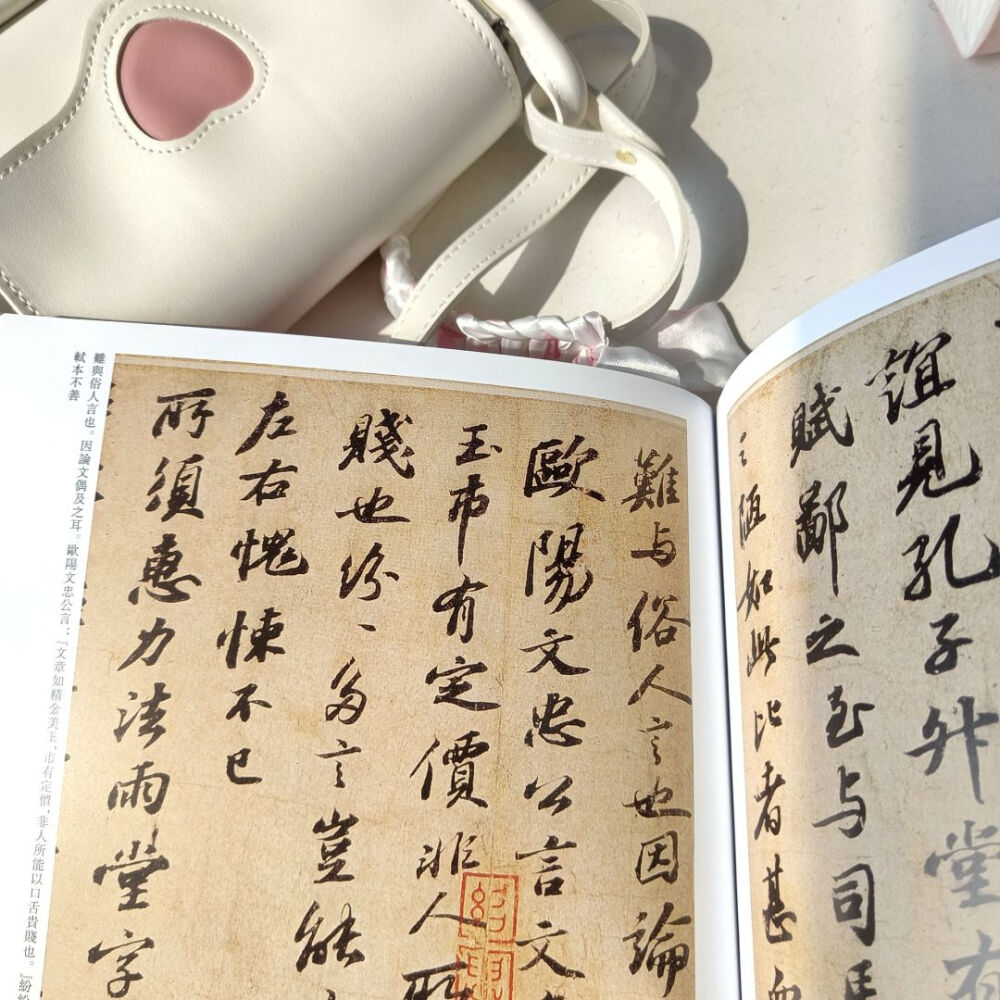 誼見孔子升堂有
賦鄙之至与司馬
之陋如此比者甚
難与俗人言也因論
歐陽文忠公言文
玉市有定價非人所
賤也紛〻多言豈能
左右愧悚不已
所須惠力法雨堂字
難與俗人言也。因論文偶及之耳。歐陽文忠公言：『文章如精金美玉，市有定價，非人所能以口舌貴賤也。』紛紛
軾本不善